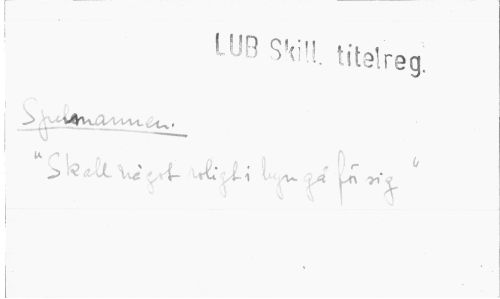 LUB Skill. titelreg.
Spelmannen.
"Skall något roligt i byn gå för sig"